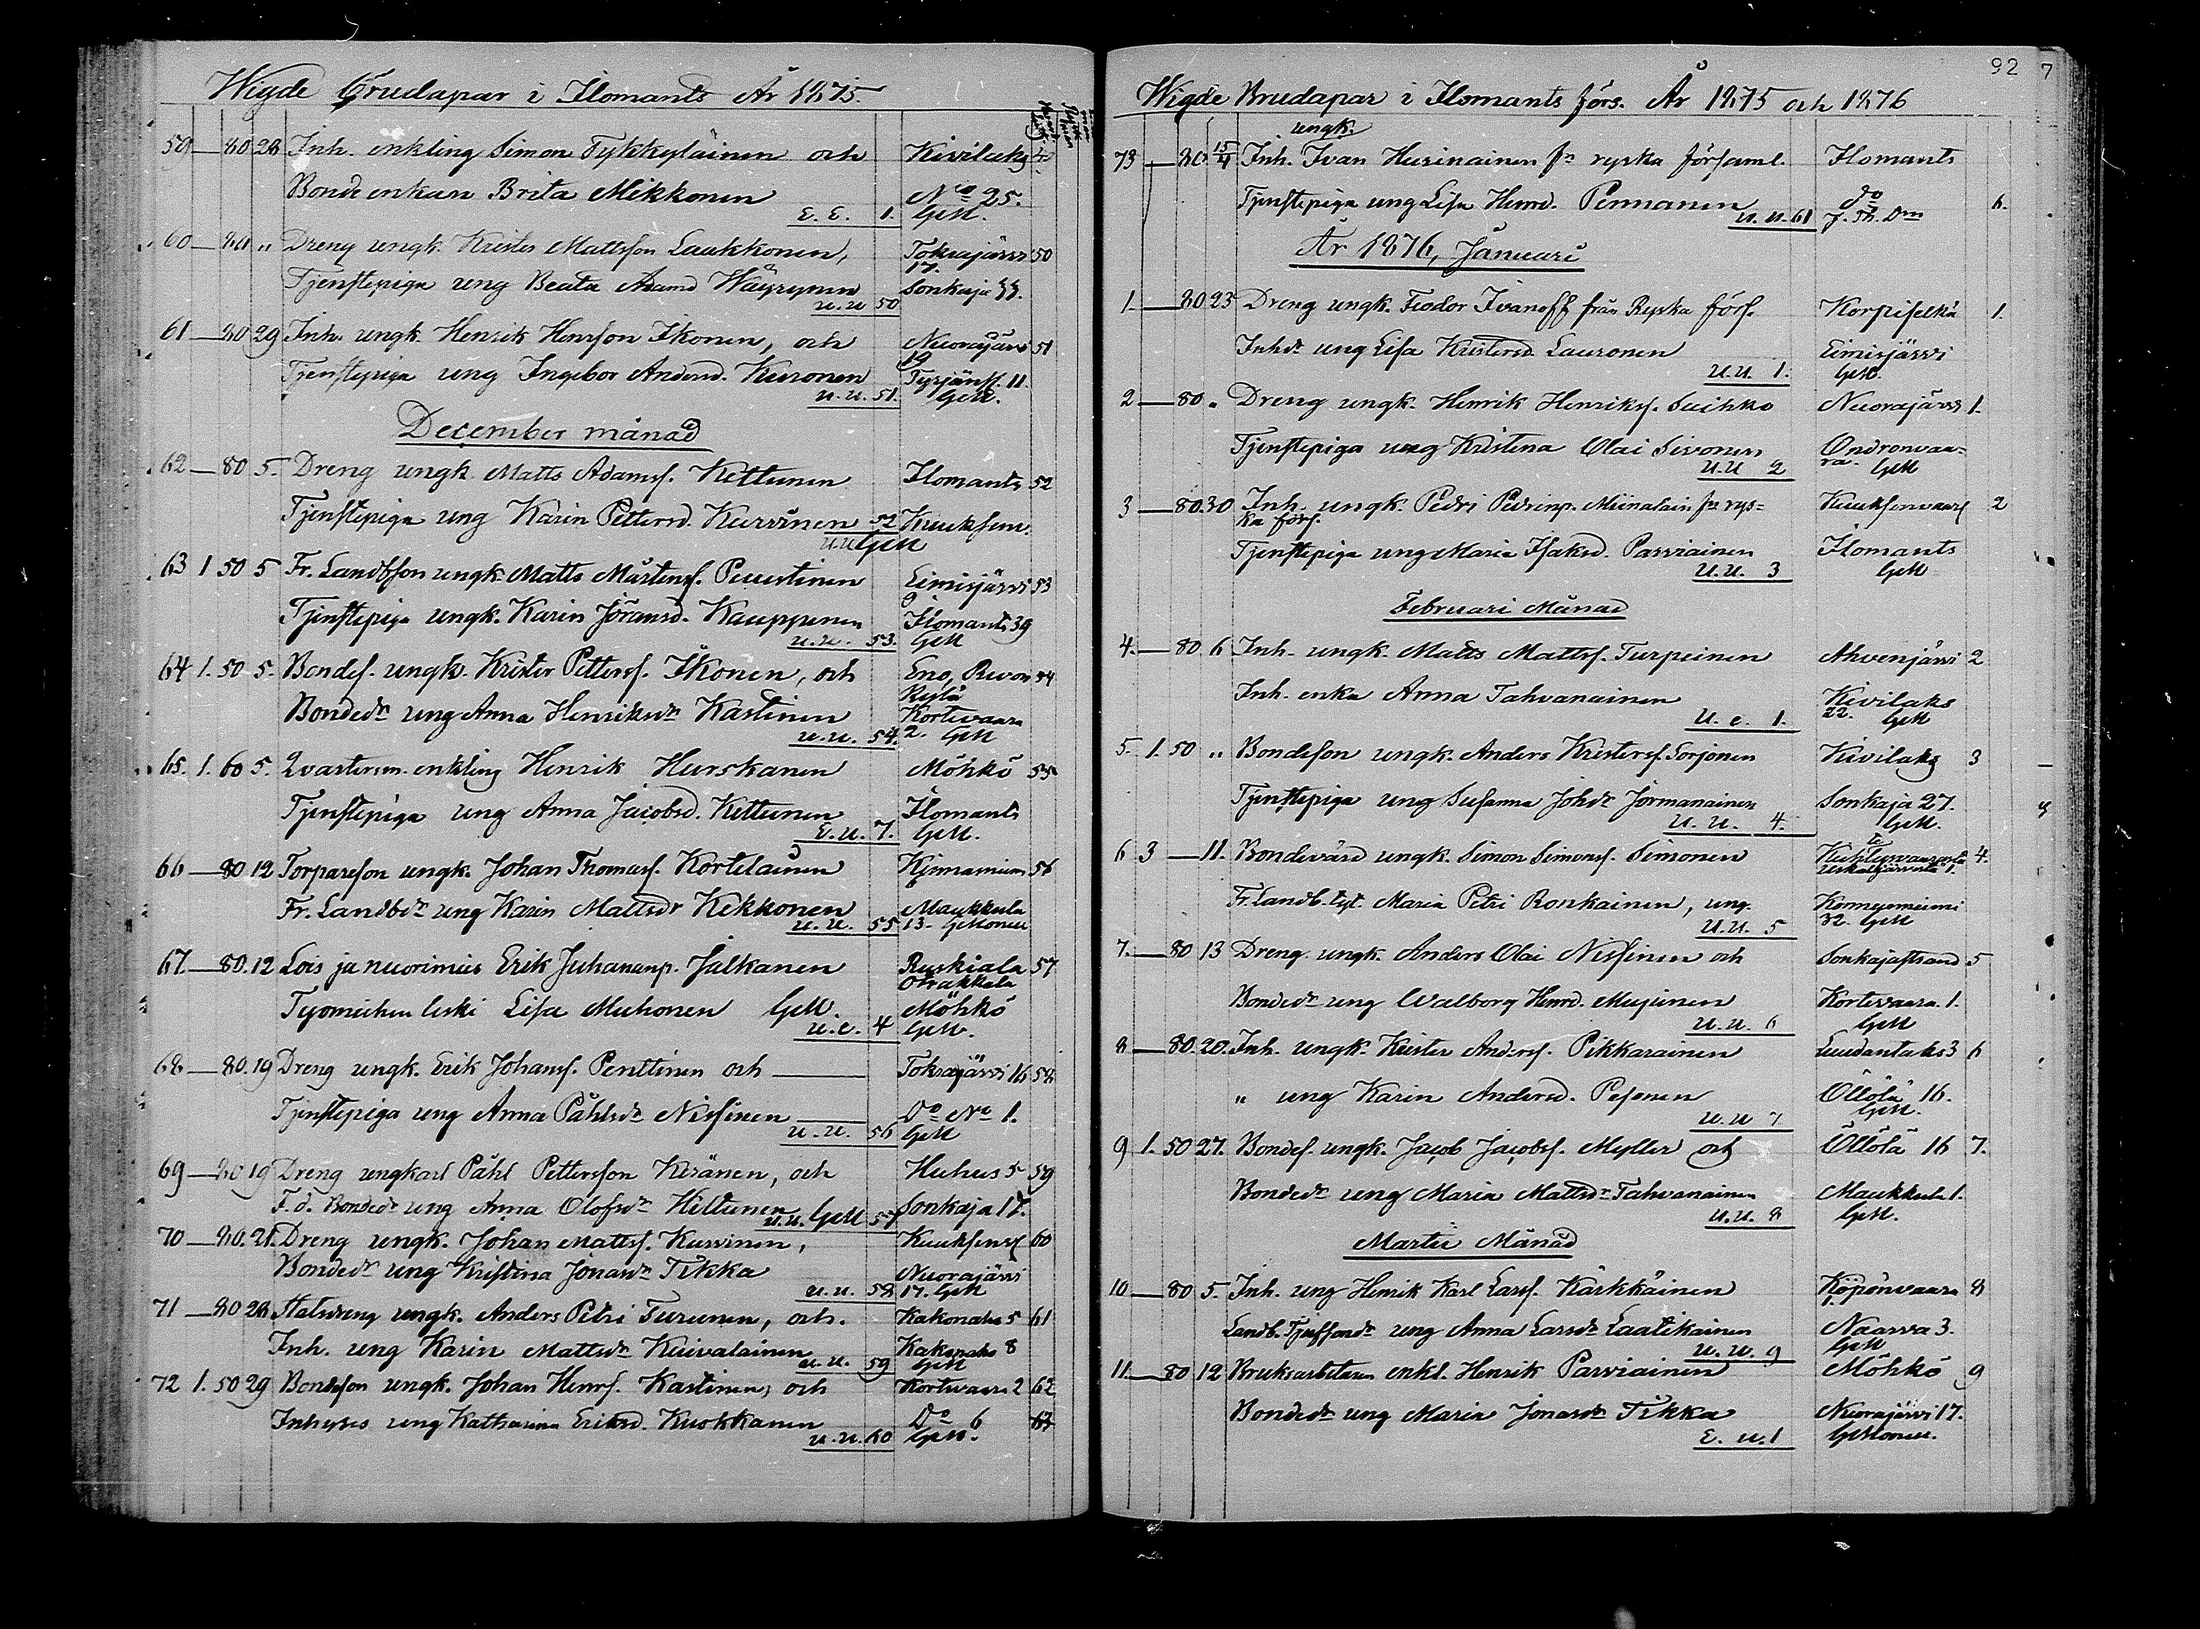 Wigde Brudapar i Ilomants År 1875.
59 — 80 28 Inh. enkling Simon Tykkyläinen och Kivilaks
Bonde enkan Brita Mikkonen No 25.
E. E. 1. GM.
60 — 80 " Dreng ungk. Krister Mattsson Laakkonen, Tokrajärvi 50
17.
Tjenstepiga ung Beata Adamd Wäyrynen Sonkaja
u.u 50
61 — 80 29 Inh. ungk. Henrik Henrsson Ikonen, och Nuorajärvi 51
19
Tjenstepiga ung Ingebor Andersd. Kuronen Tyrjänsf. 11.
u.u. 51. GM.
December månad
62 — 80 5. Dreng ungk Matts Adamsf. Kettunen Ilomants 52
Tjenstepiga ung Karin Pettersd. Kurvinen 52 Kuuksenv.
u.u GM
63 1 50 5 Fr. Landbsson ungk. Matts Mårtensf. Puustinen Eimisjärvi 53
9
Tjenstepiga ungk. Karin Jöransd. Kauppinen Ilomants 39
u.u. 53. GM
64 1. 50 5. Bondes. ungk. Krister Pettersf. Ikonen, och Eno, Revon 54
Kylä
Bondedr ung Anna Henriksdr Kastinen Kortevaara
u.u. 54. 2. GM
65. 1. 60 5. Qvartersm. enkling Henrik Hurskanen Möhkö 55
Tjenstepiga ung Anna Jacobsd. Kettunen Ilomants
E.u. 7. GM.
66 — 80 12 Torpareson ungk. Johan Thomasf. Kortelainen 56
Fr. Landbdr ung Karin Mattsdr Kekkonen Maukkula
u.u. 55 13. GMonen
67 — 80. 12 Lois ja nuorimies Erik Juhananp. Jalkanen Ruskiala 57
Otrakkala
Työmiehen leski Lisa Muhonen GM. Möhkö
u.e. 4 GM.
68 — 80. 19 Dreng ungk. Erik Johansf. Penttinen och — Tokrajärvi 16 58
Tjenstepiga ung Anna Påhlsdr Nissinen — Do No 1.
u.u. 56 GM
69 — 80 19 Dreng ungkarl Påhl Pettersson Keränen, och Huhus 5 59
F.d. Bondedr ung Anna Olofsdr Hiltunen Sonkaja 17.
u.u. GM 57
70 — 80. 21. Dreng ungk. Johan Mattsf. Kurvinen, Kuuksenv 60
Bondedr ung Kristina Jonasdr Tikka Nuorajärvi
u.u. 58 17. GM
71 — 80 28 Statdreng ungk. Anders Petri Turunen, och. Kakonaho 5 61
Inh. ung Karin Mattsdr Kuivalainen Kakonaho 8
u.u. 59 GM
72 1. 50 29 Bondeson ungk. Johan Henrs. Kastinen, och Kortevaara 2 62
Inhyses ung Katharina Eriksd. Kuokkanen Do 6
u.u. 60 GM.
92 7
Wigde Brudapar i Ilomants förs. År 1875 och 1876
ungk.
73 — 80. 15/4 Inh. Ivan Husinainen fr ryska församl. Ilomants
Tjenstepiga ung Lisa Henrd. Pennanen do 6.
u.u. 61 J. Th. Dm
År 1876, Januari
1. — 80 23 Dreng ungk. Feodor Ivanoff från Ryska förs. Korpiselkä 1.
Inhdr ung Lisa Kristersd. Lauronen Eimisjärvi
u.u. 1. GM.
2 — 80 " Dreng ungk. Henrik Henriksf. Suihko Nuorajärvi 1.
Tjenstepiga ung Kristina Olai Sivonen Ondronvaa=
u.u 2 ra. GM
3 — 80. 30 Inh. ungk. Pedri Pedrinp. Miinalain. fr rys= Kuuksenvaara 2
ka förs.
Tjenstepiga ung Maria Isaksd. Parviainen Ilomants
u.u. 3 GM
Februari Månad
4. — 80 6 Inh. ungk. Matts Mattsf. Turpeinen Ahvenjärvi 2
Inh. enka Anna Tahvanainen Kivilaks
u.e. 1. 22. GM
5. 1. 50 " Bondeson ungk. Anders Kristersf. Sorjonen Kivilaks 3
Tjenstepiga ung Susanna Johdr Jormanainen Sonkaja 27.
u.u. 4. GM.
6 3 — 11. Bondevärd ungk. Simon Simonsf. Simonen 4.
Fr. Landb. Maria Petri Ronkainen, ung.
u.u. 5 32. GM
7. — 80 13 Dreng ungk. Anders Olai Nissinen och Sonkajastrand 5
Bondedr ung Walborg Henrd. Mujunen Kortevaara 1.
u.u. 6 GM
8 — 80. 20. Inh. ungk. Krister Andersf. Pikkarainen Luudanlaks 3 6
" ung Karin Andersd. Pesonen Öllölä 16.
u.u 7 GM.
9 1. 50 27. Bondes. ungk. Jacob Jacobsf. Myller och Öllölä 16 7.
Bondedr ung Maria Mattsdr Tahvanainen Maukkula 1.
u.u. 8 GM.
Martii Månad
10 — 80 5. Inh. ung Henrik Karl Larsf. Kärkkäinen Köpönvaara 8
1.
Landb. ung Anna Larsdr Laatikainen Naarva 3.
u.u. 9 GM
11. — 80 12 Bruksarbetaren enkl. Henrik Parviainen Möhkö 9
Bondedr ung Maria Jonasdr Tikka Nuorajärvi 17.
E. u. 1 GMonen.